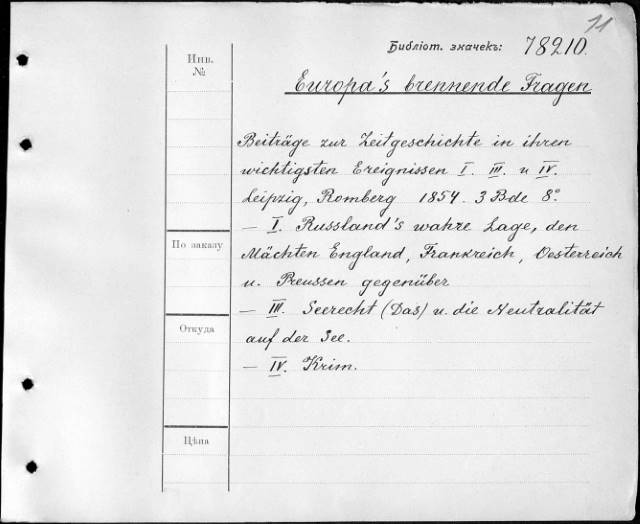 11
Библіот. значекъ: 78210.
Инв.
№
Europa's brennende Fragen
Beiträge zur Zeitgeschichte in ihren
wichtigsten Ereignissen I. III. u IV.
Leipzig, Romberg 1854. 3 Bde 8º.
— I. Russland's wahre Lage, den
По заказу
Mächten England, Frankreich, Oesterreich
u. Preussen gegenüber
— III. Seerecht (Das) u. die Neutralität
Откуда
auf der See.
— IV. Krim.
Цѣна